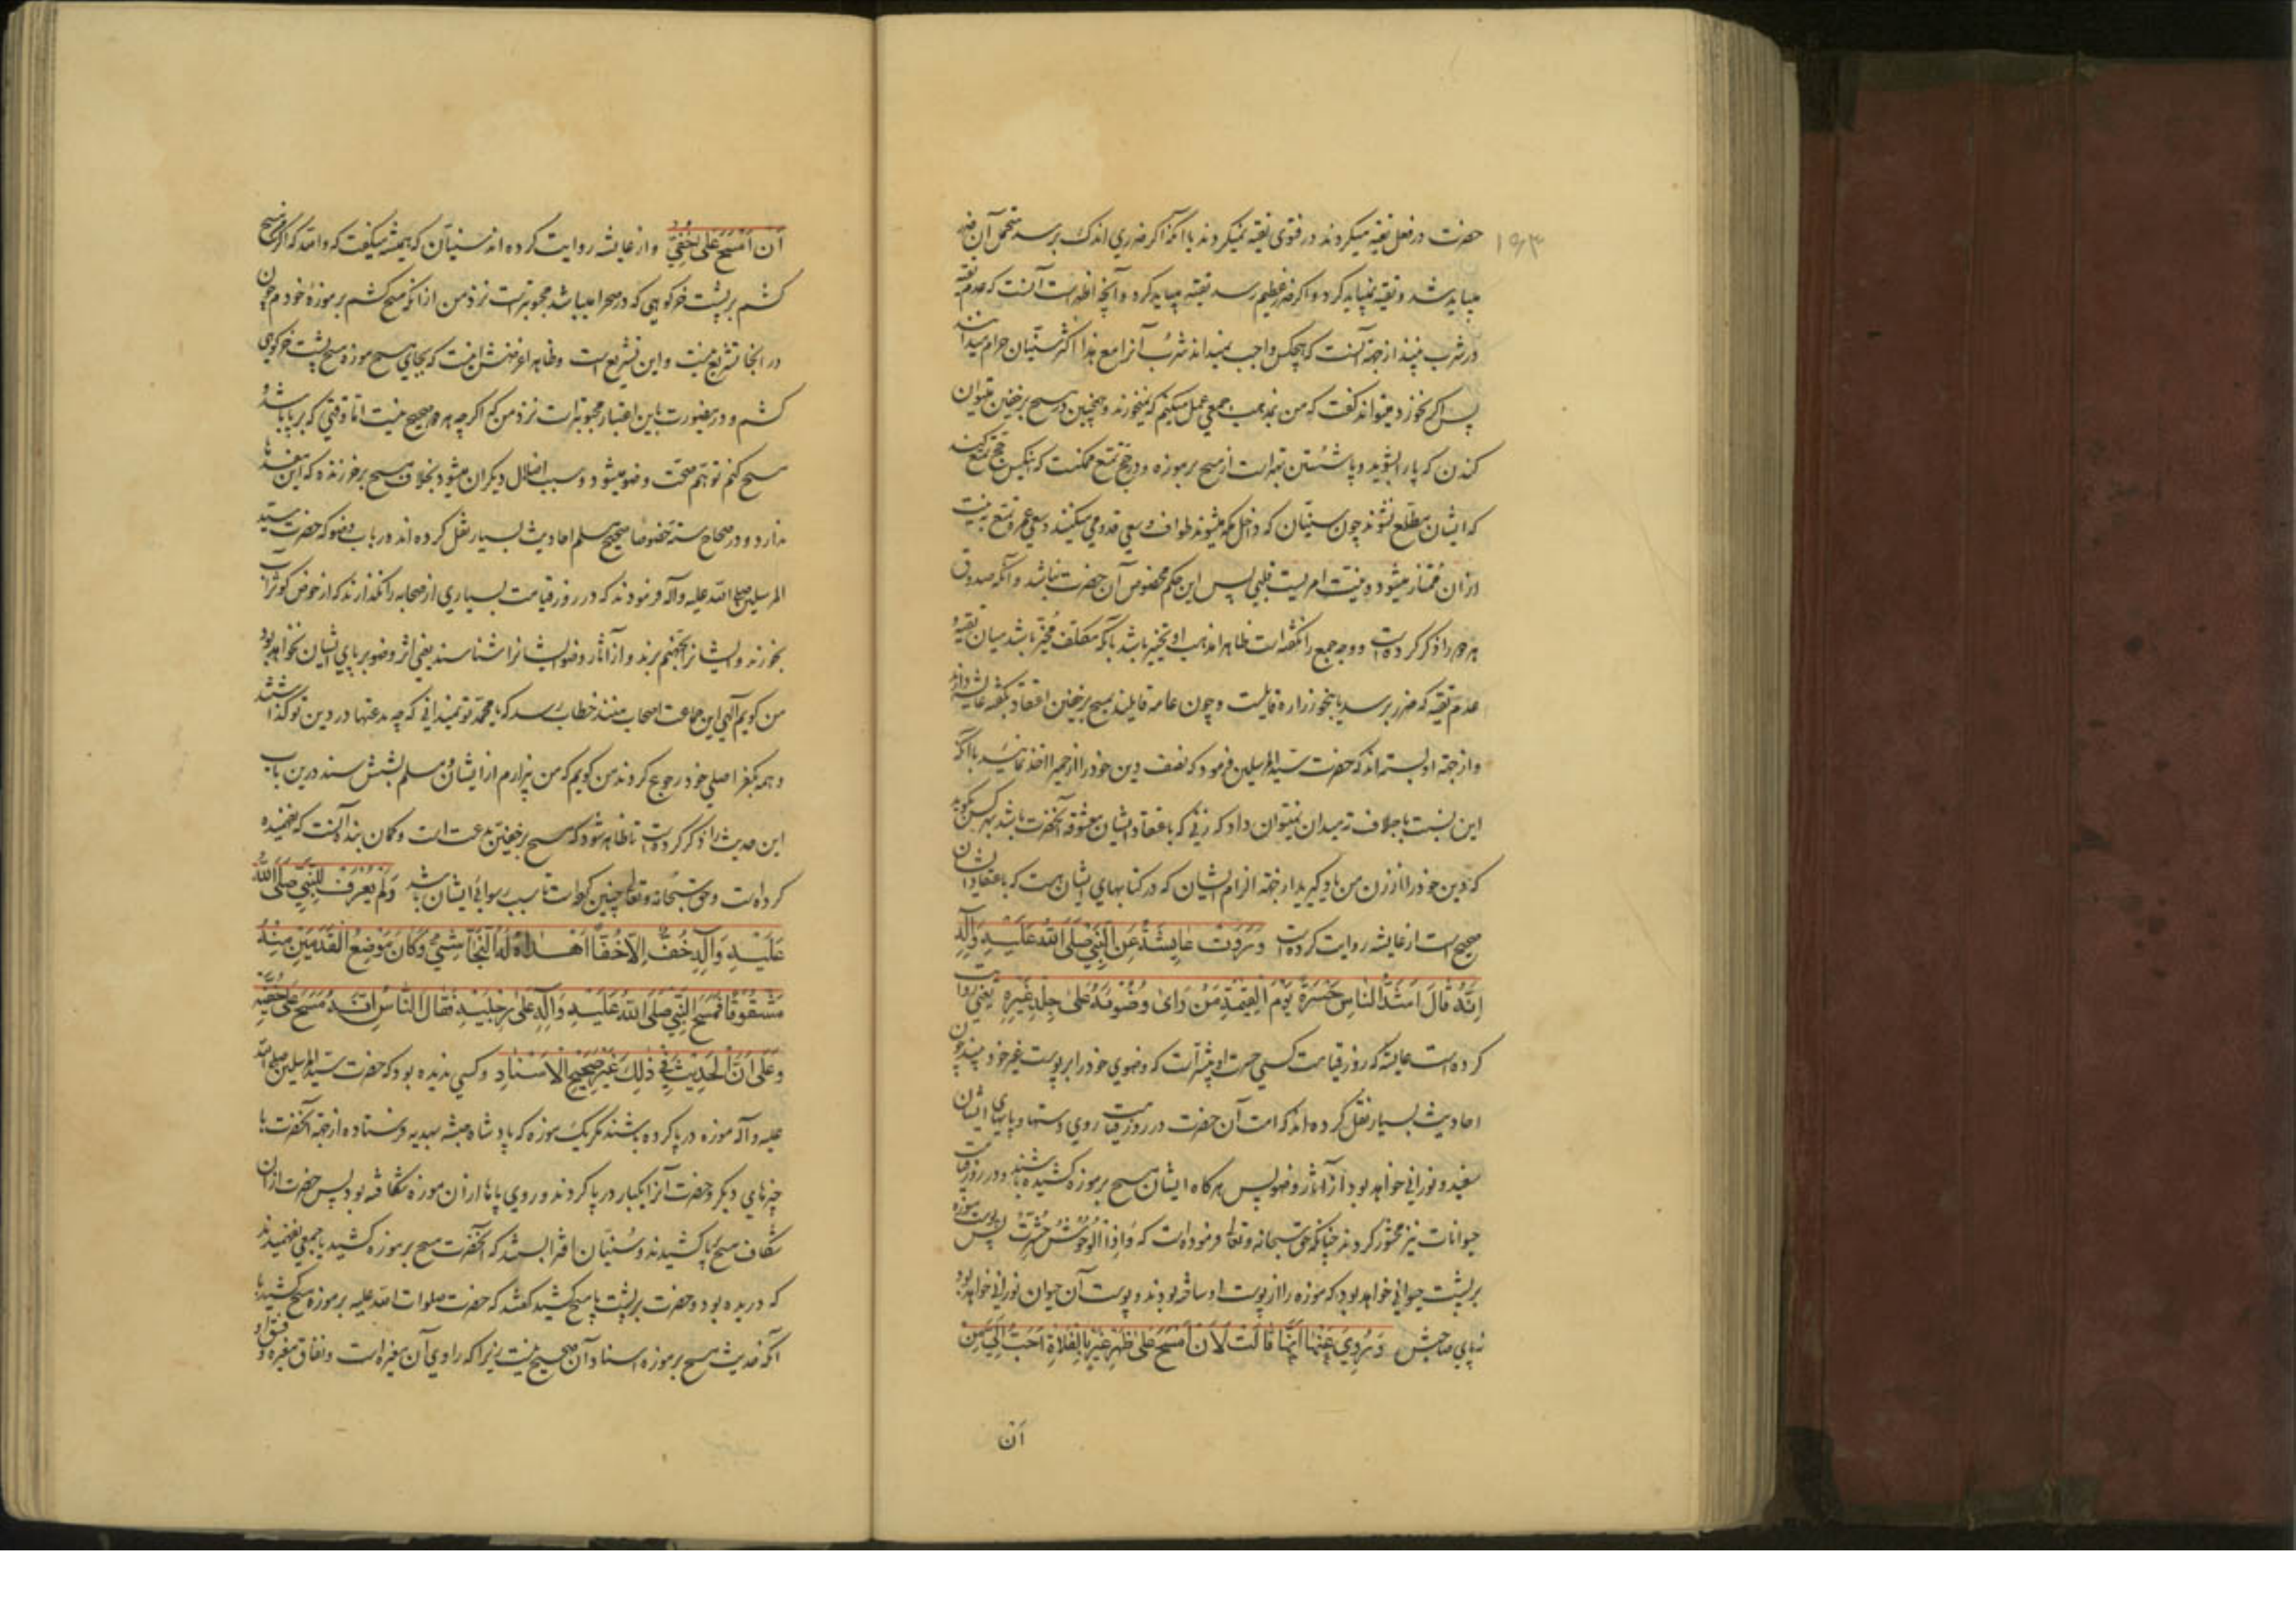 ۱۶۳
حضرت در فعل تقیه میکردند در فتوی تقیه نمیکردند با آنکه اگر ضرری اندک برسد متحمل آن ضرر
میباید شد و تقیه نمیباید کرد و اگر ضرر عظیم رسد تقیه میباید کرد و آنچه اظهر است آنست که عدم تقیه
در شرب نبیذ از جهة آنست که هیچکس واجب نمیداند شرب آنرا مع هذا اکثر سنیان حرام میدانند
پس اگر نخورد میتواند گفت که من بمذهب جمعی عمل میکنم که نمیخورند و همچنین در مسح بر خفین میتوان
کندن که پا را بشوید و پا شستن بهتر است از مسح بر موزه و در حج تمتع ممکنست که اینکس حج تمتع کند
که ایشان مطلع نشوند چون سنیان که داخل مکه میشوند طواف و سعی قدومی میکنند و سعی عمره تمتع به نیت
از ان ممتاز میشود و نیت امریست قلبی پس این حکم مخصوص آن حضرت نباشد و آنکه صدوق
هر دو را ذکر کرده است و وجه جمع را نگفته است ظاهرا مذهب او تخییر باشد یا آنکه مکلف مخیر باشد میان تقیه و
عدم تقیه که ضرر برسد یا بنحو زراره قایلست و چون عامه قایلند بمسح بر خفین اعتقاد بگفته عایشه دارند
و از جهة او بسته اند که حضرت سید المرسلین فرمود که نصف دین خود را از حمیرا اخذ نمائید با آنکه
این نسبت باجلاف نمیتوان داد که زنی که باعتقاد ایشان معشوقه آنحضرت باشد بهر کس بگوید
که دین خود را از زن من یاد گیرید از جهة الزام ایشان که در کتابهای ایشان هست که باعتقاد ایشان
صحیح است از عایشه روایت کرده است وَ رَوَتْ عَایِشَةُ عَنِ النَّبِيِّ صَلَّى اللهُ عَلَيْهِ وَآلِهِ
اِنَّهُ قَالَ اَشَدُّ النَّاسِ حَسْرَةً يَوْمَ الْقِيٰمَةِ مَنْ رَاىٰ وُضُوئَهُ عَلىٰ جِلْدِ غَيْرِهِ یعنی روایت
کرده است عایشه که روز قیامت کسی حسرت او بیشتر است که وضوی خود را بر پوست غیر خود ببیند چون
احادیث بسیار نقل کرده اند که امت آن حضرت در روز قیامت روی و دستها و پایهای ایشان
سفید و نورانی خواهد بود از آثار وضو پس هر گاه ایشان مسح بر موزه کشیده باشند و در روز قیامت
حیوانات نیز محشور گردند چنانکه حق سبحانه و تعالی فرموده است که وَ اِذَا الْوُحُوشُ حُشِرَتْ پس پوست موزه
بر پشت حیوانی خواهد بود که موزه را از پوست او ساخته بودند و پوست آن حیوان نورانی خواهد بود
نه پای صاحبش وَ رُوِيَ عَنْهَا اَنَّهَا قَالَتْ لَاَنْ اَمْسَحَ عَلىٰ ظَهْرِ عَيْرٍ بِالْفَلَاةِ اَحَبُّ اِلَيَّ مِنْ
اَن
اَنْ اَمْسَحَ عَلىٰ خُفَّيَّ و از عایشه روایت کرده اند سنیان که همیشه میگفت که والله که اگر مسح
کشم بر پشت خر کوهی که در صحرا میباشد محبوبتر است نزد من از آنکه مسح کشم بر موزۀ خودم چون
در انجا تشریع نیست و این تشریع است و ظاهرا غرضش اینست که بجای مسح موزه مسح پشت خر کوهی
کشم و در ینصورت باین اعتبار محبوبتر است نزد من که اگر چه هر دو صحیح نیست اما وقتی که بر پا باشد و
مسح کنم توهم صحت وضو میشود و سبب اضلال دیگران میشود بخلاف مسح بر خر زنده که این مفسدها
ندارد و در صحاح سته خصوصا صحیح مسلم احادیث بسیار نقل کرده اند در باب وضو که حضرت سید
المرسلین صلی الله علیه و آله فرمودند که در روز قیامت بسیاری از صحابه را نگذارند که از حوض کوثر آب
بخورند و ایشانرا بجهنم برند و از آثار وضو ایشانرا شناسند یعنی اثر وضو بر پای ایشان نخواهد بود
من گویم آلهی این جماعت اصحاب منند خطاب رسد که یا محمد تو نمیدانی که چه بدعتها در دین تو گذاشتند
و همه بکفر اصلی خود رجوع کردند من گویم که من بیزارم از ایشان و مسلم بشش سند درین باب
این حدیث را ذکر کرده است تا ظاهر شود که مسح بر خفین بدعت است و گمان بنده آنست که نفهمیده
کرده است و حق سبحانه و تعالی چنین کرده است تا سبب رسوائی ایشان باشد وَلَمْ يُعْرَفْ لِلنَّبِيِّ صَلَّى اللهُ
عَلَيْهِ وَآلِهِ خُفٌّ اِلَّا خُفًّا اَهْدَاهُ لَهُ النَّجَاشِيُّ وَكَانَ مَوْضِعُ الْقَدَمَيْنِ مِنْهُ
مَشْقُوقًا فَمَسَحَ النَّبِيُّ صَلَّى اللهُ عَلَيْهِ وَآلِهِ عَلىٰ رِجْلَيْهِ فَقَالَ النَّاسُ اِنَّهُ مَسَحَ عَلىٰ خُفَّيْهِ
وَعَلىٰ اَنَّ الْحَدِيثَ فِي ذٰلِكَ غَيْرُ صَحِيحِ الْاِسْنَادِ و کسی ندیده بود که حضرت سید المرسلین صلی الله
علیه و آله موزه در پا کرده باشند مگر یک موزه که پادشاه حبشه بهدیه فرستاده از جهة آنحضرت با
چیزهای دیگر و حضرت آنرا یکبار در پا کردند و روی پاها از ان موزه شکافته بود پس حضرت از ان
شکاف مسح پا کشیدند و سنیان افترا بستند که آنحضرت مسح بر موزه کشید یا جمعی نفهمیدند
که دریده بود و حضرت بر پشت پا مسح کشید گفتند که حضرت صلوات الله علیه بر موزه مسح کشید با
آنکه حدیث مسح بر موزه اسناد آن صحیح نیست زیرا که راوی آن مغیره است و نفاق مغیره و فسق او و